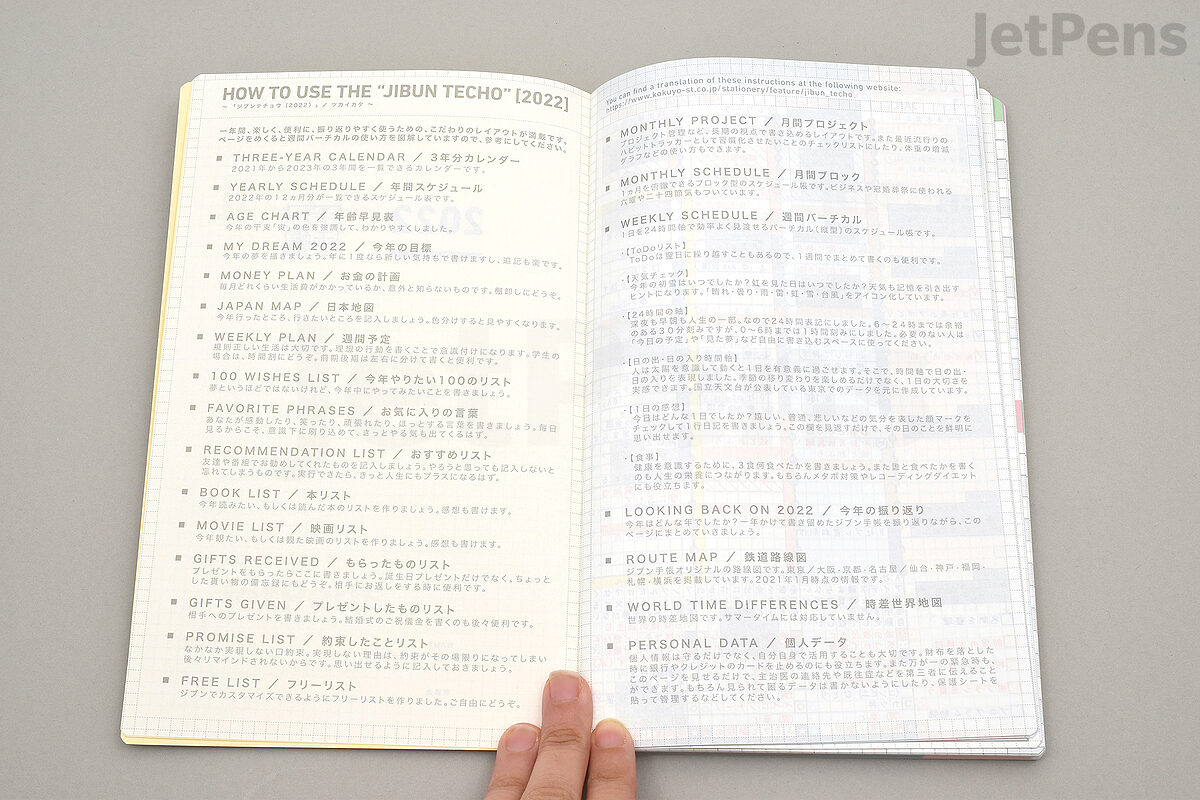 JetPens
HOW TO USE THE "JIBUN TECHO" [2022]
~「ジブンテチョウ(2022)」/ツカイカタ~
一年間、楽しく、便利に、振り返りやすく使うための、こだわりのレイアウトが満載です。
ページをめくると週間バーチカルの使い方を図解していますので、参考にしてください。
■ THREE-YEAR CALENDAR / 3年分カレンダー
2021年から2023年の3年間を一覧できるカレンダーです。
■ YEARLY SCHEDULE / 年間スケジュール
2022年の12ヵ月分が一覧できるスケジュール表です。
■ AGE CHART / 年齢早見表
今年の干支「寅」の色を強調して、わかりやすくしました。
■ MY DREAM 2022 / 今年の目標
今年の夢を描きましょう。年に1度なら新しい気持ちで書けますし、追記も楽です。
■ MONEY PLAN / お金の計画
毎月どれくらい生活費がかかっているか、意外と知らないものです。棚卸しにどうぞ。
■ JAPAN MAP / 日本地図
今年行ったところ、行きたいところを記入しましょう。色分けすると見やすくなります。
■ WEEKLY PLAN / 週間予定
規則正しい生活は大切です。理想の行動を書くことで意識付けになります。学生の
場合は、時間割にどうぞ。前期後期は左右に分けて書くと便利です。
■ 100 WISHES LIST / 今年やりたい100のリスト
夢というほどではないけれど、今年中にやってみたいことを書きましょう。
■ FAVORITE PHRASES / お気に入りの言葉
あなたが感動したり、笑ったり、頑張れたり、ほっとする言葉を書きましょう。毎日
見るからこそ、意識下に刷り込めて、きっとやる気も出てくるはず。
■ RECOMMENDATION LIST / おすすめリスト
友達や番組でお勧めしてくれたものを記入しましょう。やろうと思っても記入しないと
忘れてしまうものです。実行できたら、きっと人生にもプラスになるはず。
■ BOOK LIST / 本リスト
今年読みたい、もしくは読んだ本のリストを作りましょう。感想も書けます。
■ MOVIE LIST / 映画リスト
今年観たい、もしくは観た映画のリストを作りましょう。感想も書けます。
■ GIFTS RECEIVED / もらったものリスト
プレゼントをもらったらここに書きましょう。誕生日プレゼントだけでなく、ちょっと
した貰い物の備忘録にもどうぞ。相手にお返しをする時に便利です。
■ GIFTS GIVEN / プレゼントしたものリスト
相手へのプレゼントを書きましょう。結婚式のご祝儀金を書くのも後々便利です。
■ PROMISE LIST / 約束したことリスト
なかなか実現しない口約束。実現しない理由は、約束がその場限りになってしまい
後々リマインドされないからです。思い出せるように記入しておきましょう。
■ FREE LIST / フリーリスト
ジブンでカスタマイズできるようにフリーリストを作りました。ご自由にどうぞ。
You can find a translation of these instructions at the following website:
https://www.kokuyo-st.co.jp/stationery/feature/jibun_techo
■ MONTHLY PROJECT / 月間プロジェクト
プロジェクト管理など、長期の視点で書き込めるレイアウトです。また最近流行りの
ハビットトラッカーとして習慣化させたいことのチェックリストにしたり、体重の増減
グラフなどの使い方もできます。
■ MONTHLY SCHEDULE / 月間ブロック
1ヵ月を俯瞰できるブロック型のスケジュール帳です。ビジネスや冠婚葬祭に使われる
六曜や二十四節気もついています。
■ WEEKLY SCHEDULE / 週間バーチカル
1日を24時間絵で効率よく見渡せるバーチカル(縦型)のスケジュール帳です。
・【ToDoリスト】
ToDoは翌日に繰り越すこともあるので、1週間でまとめて書くのも便利です。
・【天気チェック】
今年の初雪はいつでしたか?虹を見た日はいつでしたか?天気も記憶を引き出す
ヒントになります。「晴れ・曇り・雨・雷・虹・雪・台風」をアイコン化しています。
・【24時間の軸】
深夜も早朝も人生の一部。なので24時間表記にしました。6~24時までは余裕
のある30分刻みですが、0~6時までは1時間刻みにしました。必要のない人は
「今日の予定」や「見た夢」など自由に書き込むスペースに使ってください。
・【日の出・日の入り時間軸】
人は太陽を意識して動くと1日を有意義に過ごせます。そこで、時間軸で日の出・
日の入りを表現しました。季節の移り変わりを楽しめるだけでなく、1日の大切さを
実感できます。国立天文台が公表している東京でのデータを元に作成しています。
・【1日の感想】
今日はどんな1日でしたか?嬉しい、普通、悲しいなどの気分を表した顔マークを
チェックして1行日記を書きましょう。この欄を見返すだけで、その日のことを鮮明に
思い出せます。
・【食事】
健康を意識するために、3食何食べたかを書きましょう。また誰と食べたかを書く
のも人生の栄養につながります。もちろんメタボ対策やレコーディングダイエット
にも役立ちます。
■ LOOKING BACK ON 2022 / 今年の振り返り
今年はどんな年でしたか?一年かけて書き留めたジブン手帳を振り返りながら、この
ページにまとめていきましょう。
■ ROUTE MAP / 鉄道路線図
ジブン手帳オリジナルの路線図です。東京/大阪・京都・名古屋/仙台・神戸・福岡・
札幌・横浜を掲載しています。2021年1月時点の情報です。
■ WORLD TIME DIFFERENCES / 時差世界地図
世界の時差地図です。サマータイムには対応していません。
■ PERSONAL DATA / 個人データ
個人情報は守るだけでなく、自分自身で活用することも大切です。財布を落とした
時に銀行やクレジットのカードを止めるのにも役立ちます。また万が一の緊急時も、
このページを見せるだけで、主治医の連絡先や既往症などを第三者に伝えること
ができます。もちろん見られて困るデータは書かないようにしたり、保護シートを
貼って管理するなどしてください。